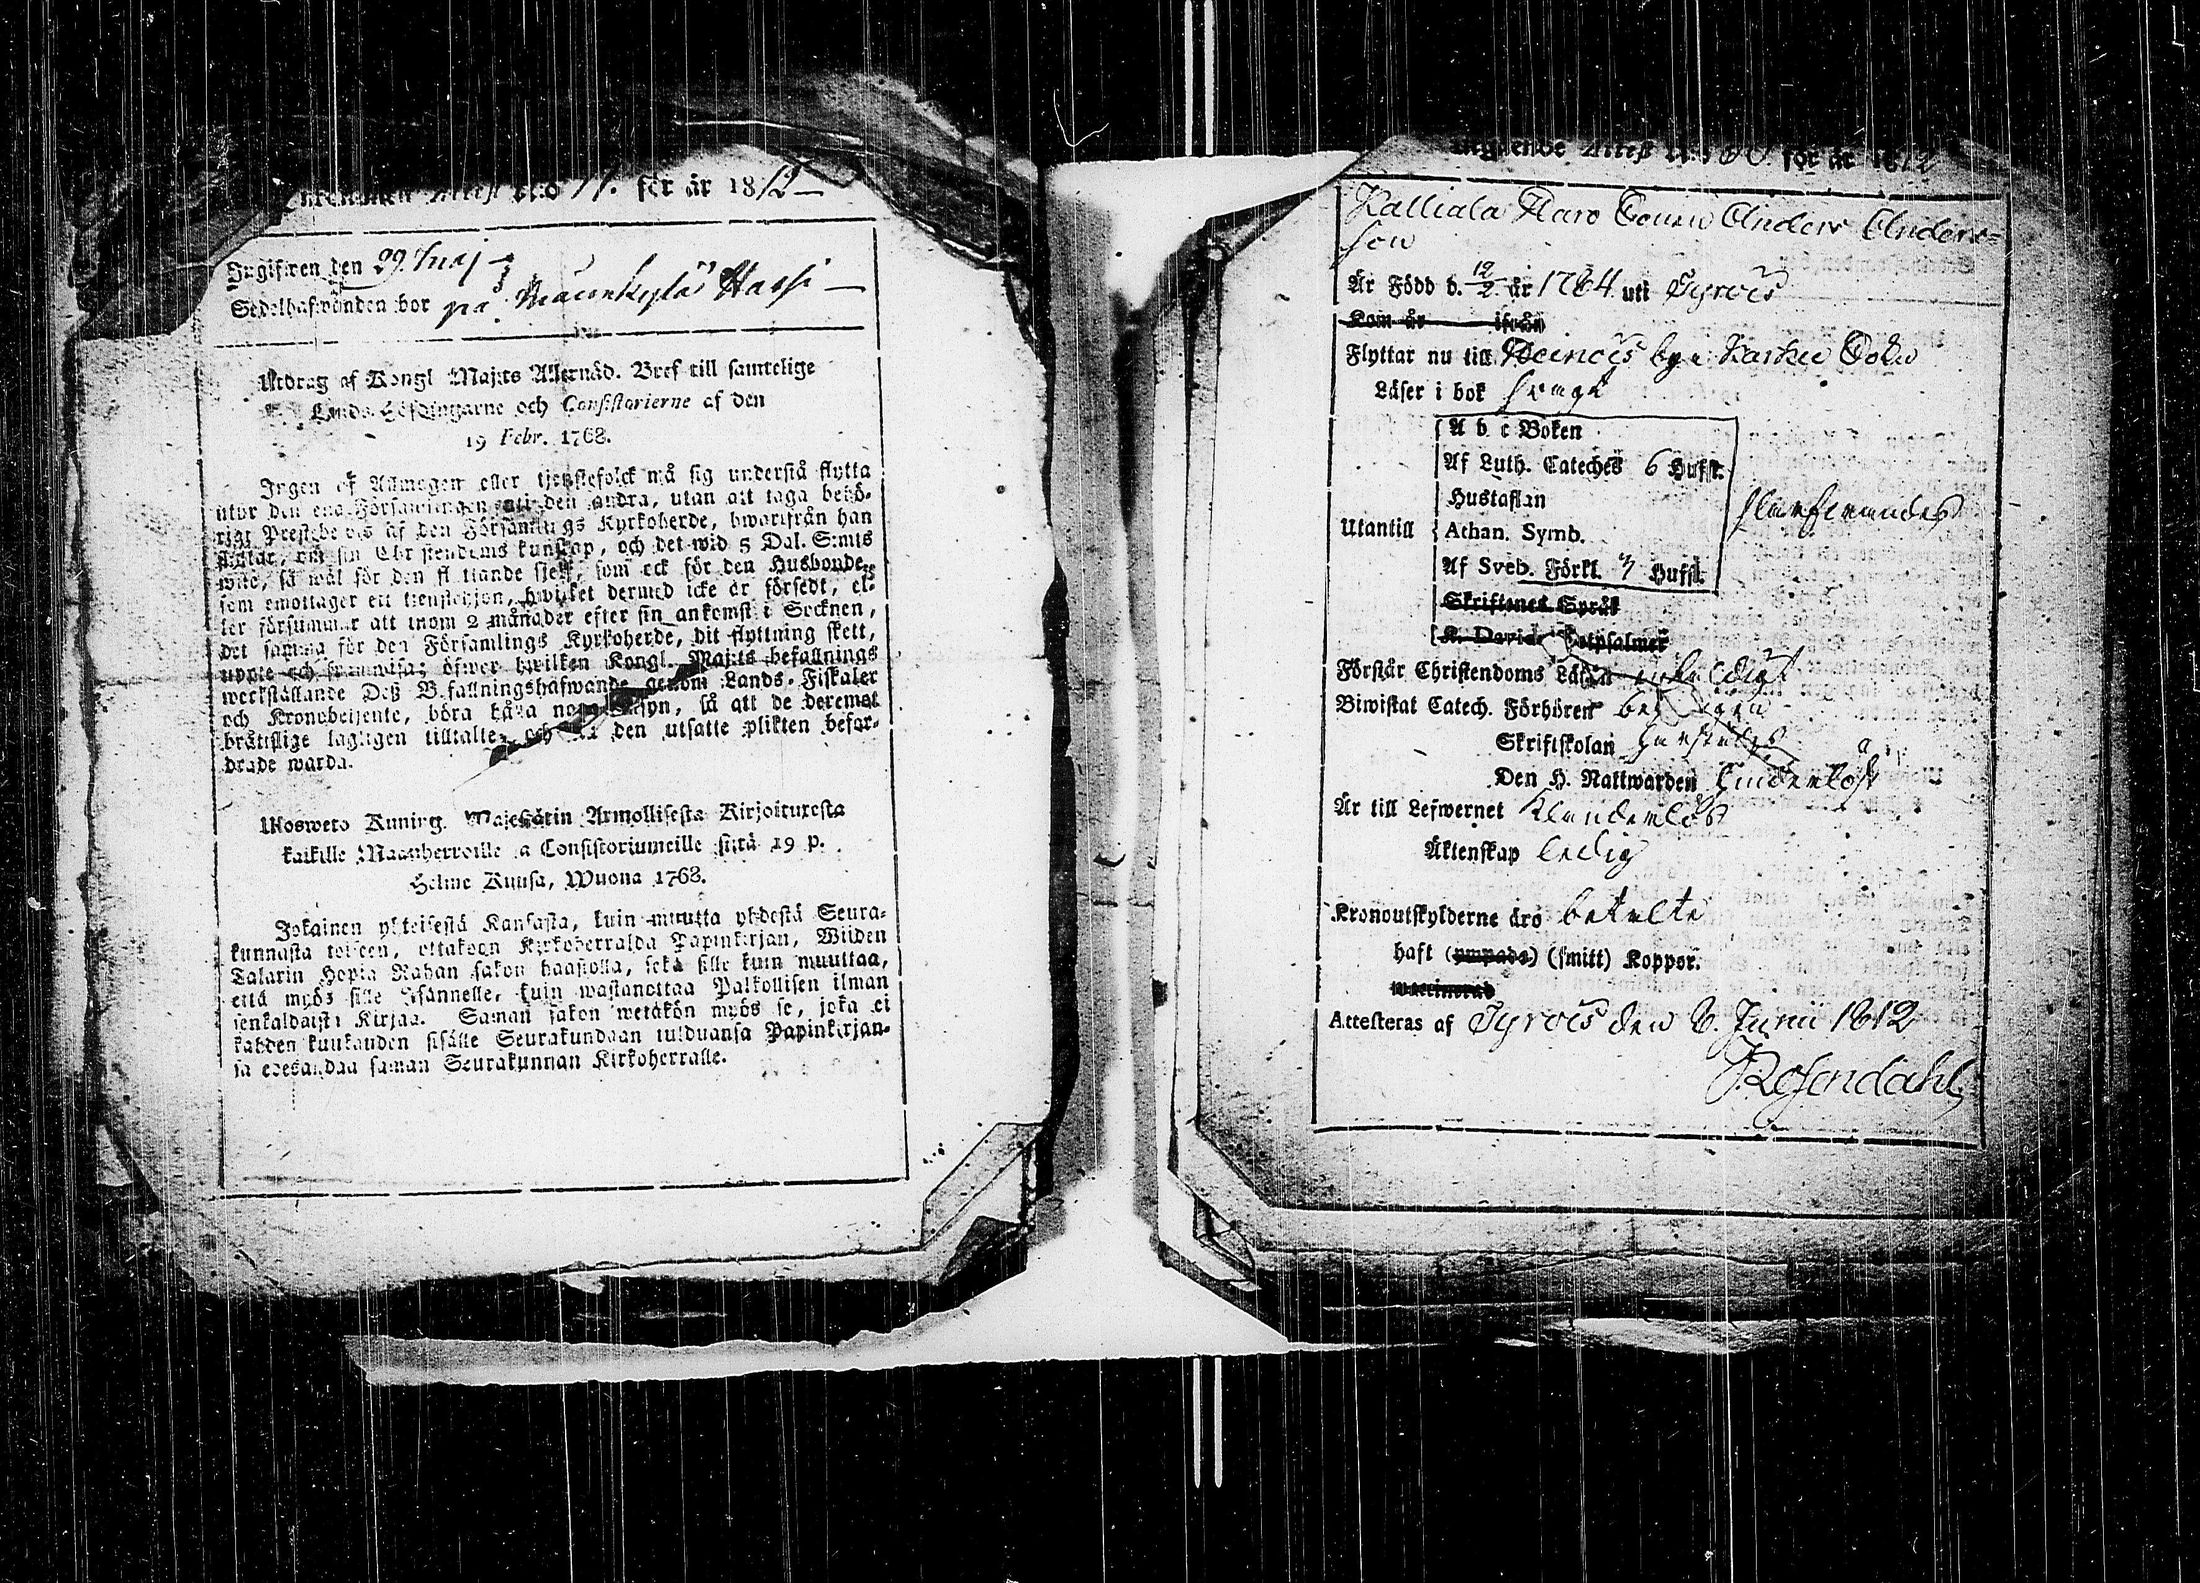 Attest N:o 11. för år 1812
Ingifwen den 29. Maj
Sedelhafwanden bor på Maunkylä Hassi
Utdrag af Kongl Maj:ts Allernåd. Bref till samtelige
Lands-Höfdingarne och Consistorierne af den
19 Febr. 1768.
Ingen af Allmogen eller tjenstefolck må sig understå flytta
utur den ena Församlingen uti den andra, utan att taga behö-
rigt Prestbewis af den Församlings Kyrkoherde, hwarifrån han
flyttar, om sin Christendoms kunskap, och det wid 5 Dal. S:mts
wite, så wäl för den flyttande sjelf, som ock för den Husbonde,
som emottager ett tjenstehjon, hwilket dermed icke är försedt, el-
ler försummar att inom 2 månader efter sin ankomst i Socknen,
det samma för den Församlings Kyrkoherde, dit flyttning skett,
uppte och framwisa; öfwer hwilken Kongl. Maj:ts befallnings
werkställande Deß Befallningshafwande genom Lands-Fiskaler
och Kronobetjente, böra hålla noga tilsyn, så att de deremot
bråtslige lagligen tilltallte, och till den utsatte plikten befor-
drade warda.
Ulosweto Kuning. Majestätin Armollisesta Kirjoituxesta
kaikille Maanherroille ja Consistoriumeille siitä 19 p.
Helme Kuusa, Wuona 1768.
Jokainen yhteisestä Kansasta, kuin muutta yhdestä Seura-
kunnasta toiseen, ottakoon Kirkoherralda Papinkirjan, Wiiden
Talarin Hopia Rahan sakon haastolla, sekä sille kuin muuttaa,
että myös sille Isännelle, kuin wastanottaa Palkollisen ilman
senkaldaista Kirjaa. Saman sakon wetäkön myös se, joka ei
kahden kuukauden sisälle Seurakundaan tulduansa Papinkirjan-
sa edesandaa saman Seurakunnan Kirkoherralle.
Attest N:o 60 för år 1812
Kalliala Haro Sonen Anders Anders-
son
Är Född d. 12/2 år 1784 uti Tyrvis
Kom år ifrån
Flyttar nu till Heinois by i Karku Sokn
Läser i bok svagt
A b c Boken
Af Luth. Cateches 6 Hufst.
Hustaflan
Utantill Athan. Symb.
Af Sveb. Förkl. 3 Hufst.
Skriftenes Språk
K. Davids Botpsalmer
Förstår Christendoms Läran
Biwistat Catech. Förhören
Skriftskolan
Den H. Nattwarden
Är till Lefwernet Klanderlös
Äktenskap ledig
Kronoutskylderne äro betalte
haft (ympade) (smitt) Koppor.
Attesteras af Tyrvis den 6. Junii 1812
Rosendahl